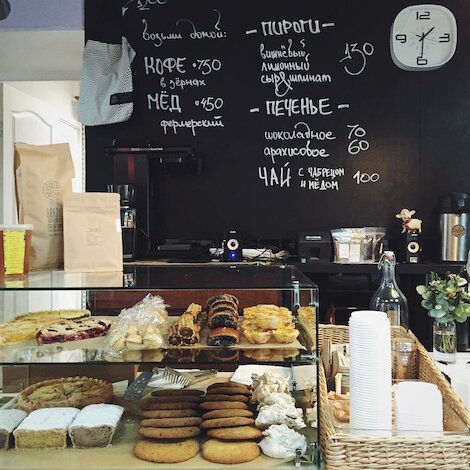 возьми домой:
КОФЕ •750
в зёрнах
МЁД •450
фермерский
- ПИРОГИ -
вишнёвый,
лимонный
сыр&шпинат
130
- ПЕЧЕНЬЕ -
шоколадное 70
арахисовое 60
ЧАЙ с чабрецом
и мёдом 100